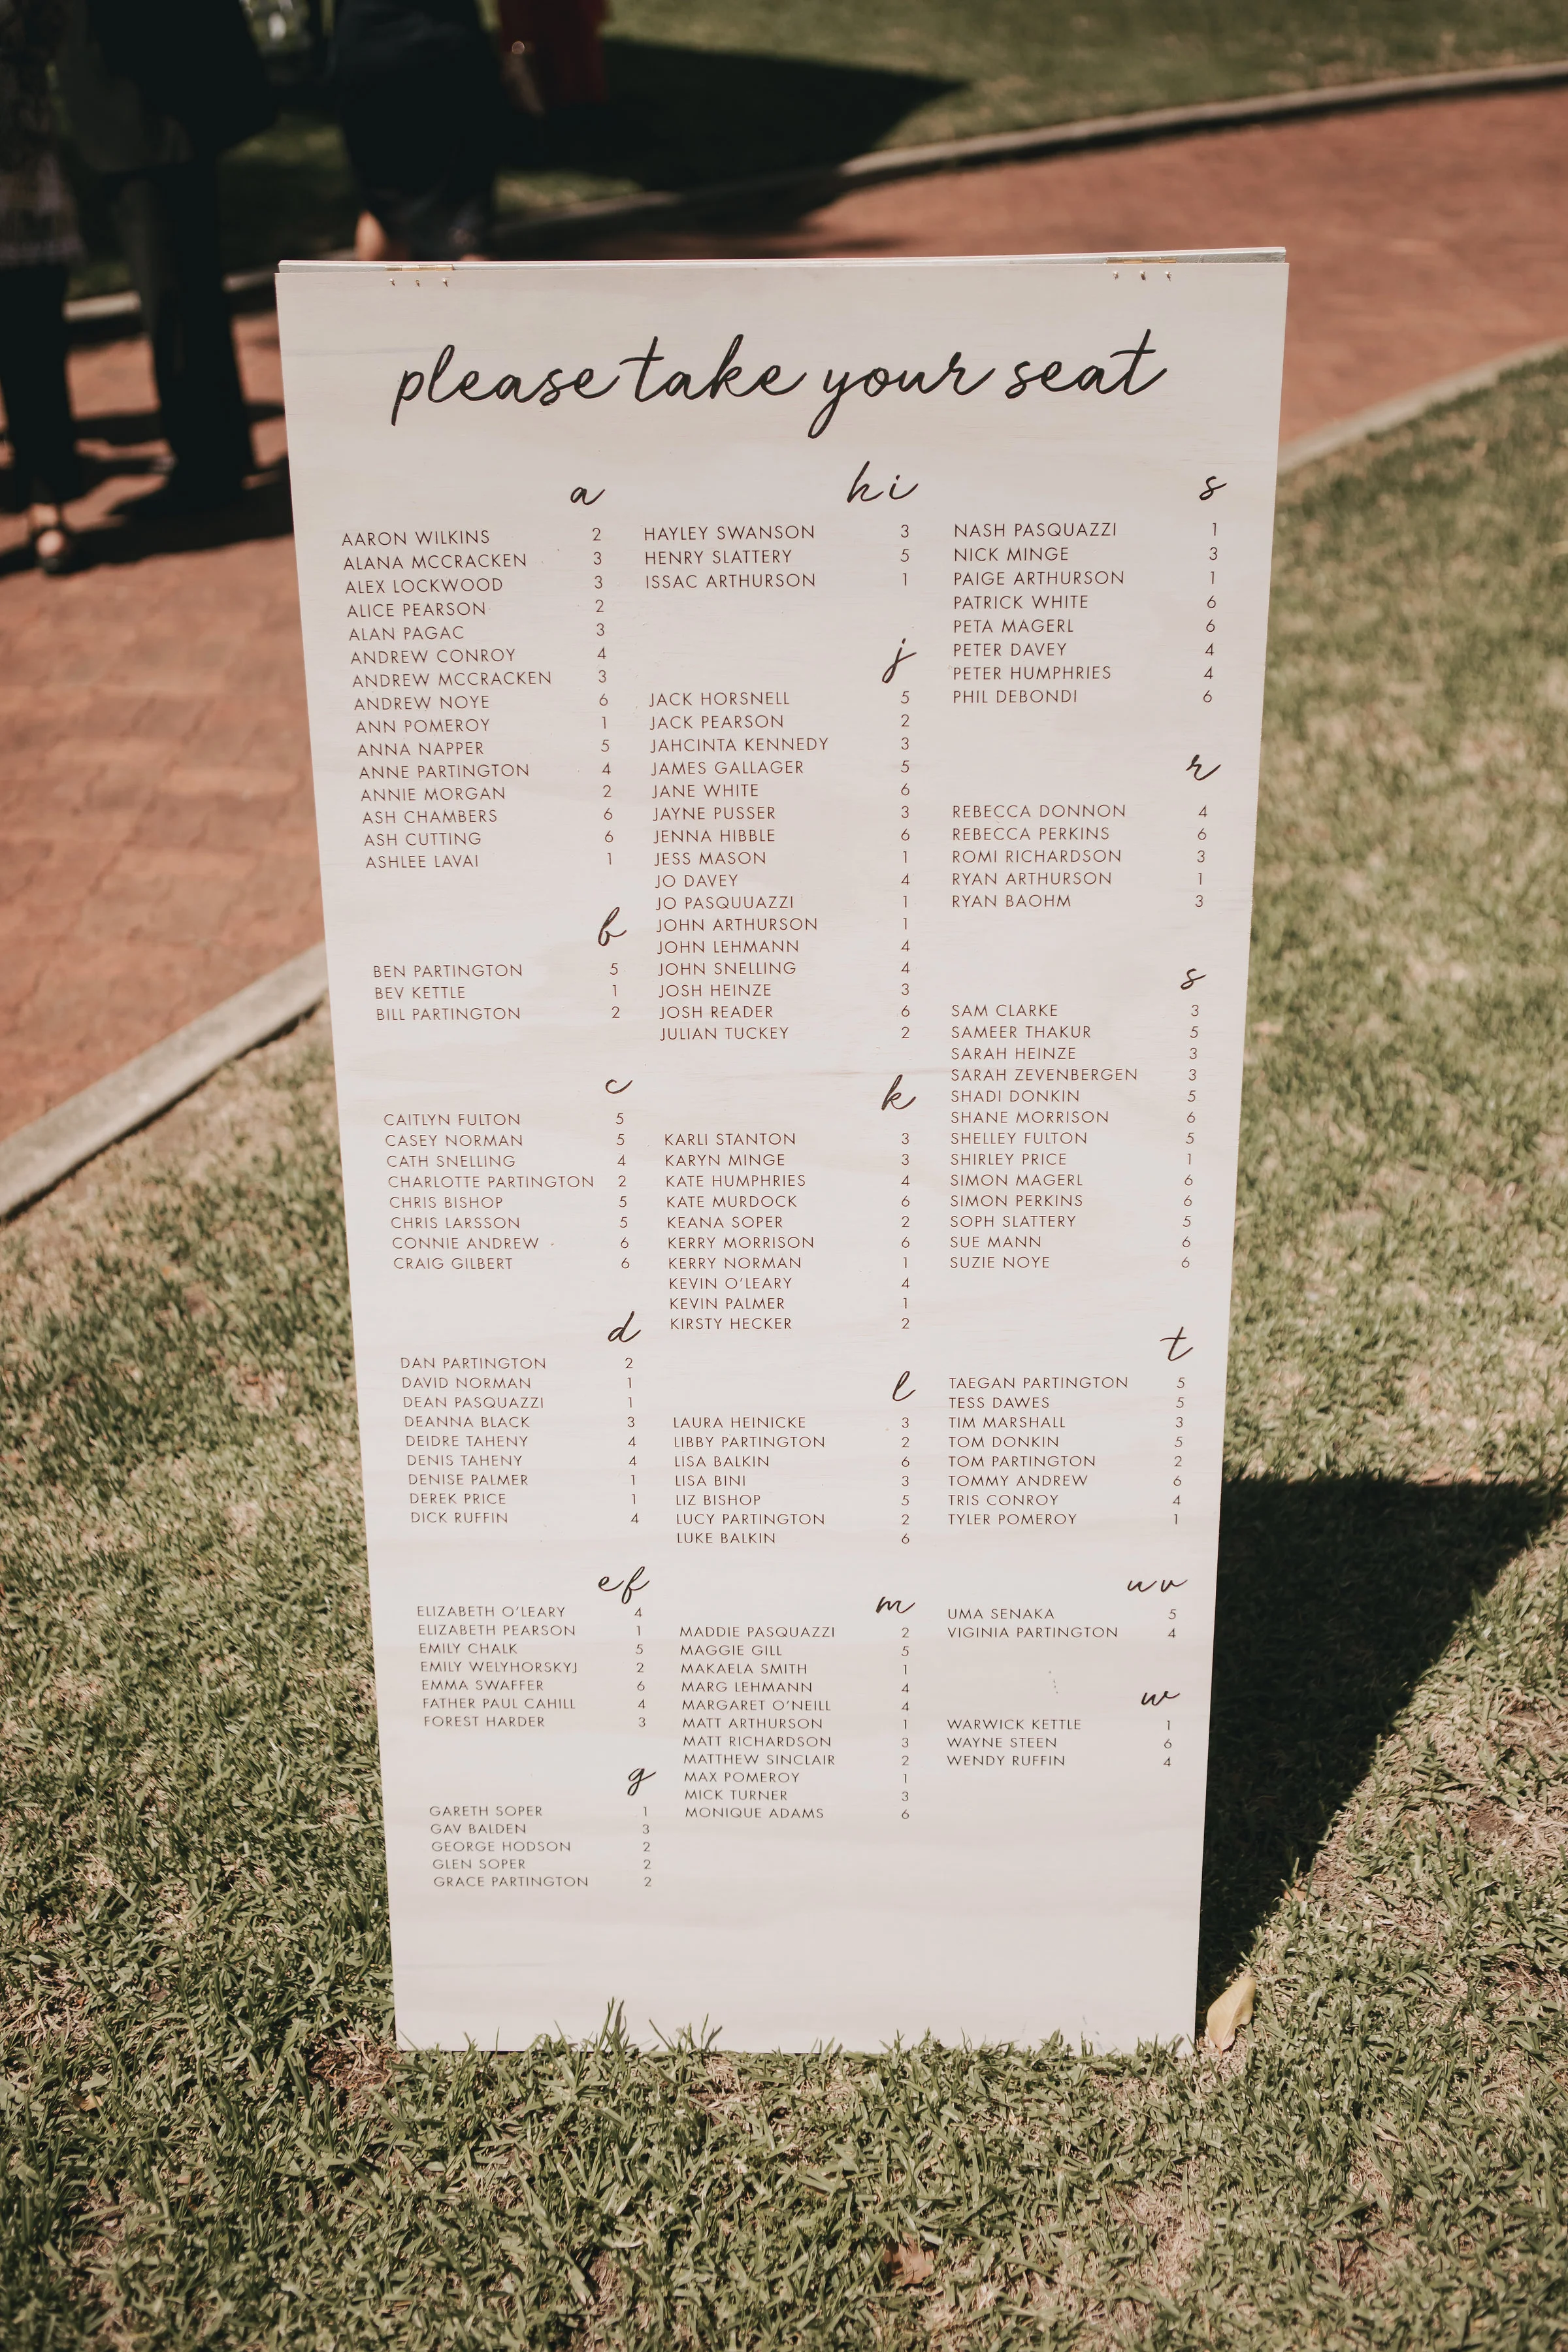 please take your seat
a
AARON WILKINS 2
ALANA MCCRACKEN 3
ALEX LOCKWOOD 3
ALICE PEARSON 2
ALAN PAGAC 3
ANDREW CONROY 4
ANDREW MCCRACKEN 3
ANDREW NOYE 6
ANN POMEROY 1
ANNA NAPPER 5
ANNE PARTINGTON 4
ANNIE MORGAN 2
ASH CHAMBERS 6
ASH CUTTING 6
ASHLEE LAVAI 1
b
BEN PARTINGTON 5
BEV KETTLE 1
BILL PARTINGTON 2
c
CAITLYN FULTON 5
CASEY NORMAN 5
CATH SNELLING 4
CHARLOTTE PARTINGTON 2
CHRIS BISHOP 5
CHRIS LARSSON 5
CONNIE ANDREW 6
CRAIG GILBERT 6
d
DAN PARTINGTON 2
DAVID NORMAN 1
DEAN PASQUAZZI 1
DEANNA BLACK 3
DEIDRE TAHENY 4
DENIS TAHENY 4
DENISE PALMER 1
DEREK PRICE 1
DICK RUFFIN 4
ef
ELIZABETH O'LEARY 4
ELIZABETH PEARSON 1
EMILY CHALK 5
EMILY WELYHORSKYJ 2
EMMA SWAFFER 6
FATHER PAUL CAHILL 4
FOREST HARDER 3
g
GARETH SOPER 1
GAV BALDEN 3
GEORGE HODSON 2
GLEN SOPER 2
GRACE PARTINGTON 2
hi
HAYLEY SWANSON 3
HENRY SLATTERY 5
ISSAC ARTHURSON 1
j
JACK HORSNELL 5
JACK PEARSON 2
JAHCINTA KENNEDY 3
JAMES GALLAGER 5
JANE WHITE 6
JAYNE PUSSER 3
JENNA HIBBLE 6
JESS MASON 1
JO DAVEY 4
JO PASQUUAZZI 1
JOHN ARTHURSON 1
JOHN LEHMANN 4
JOHN SNELLING 4
JOSH HEINZE 3
JOSH READER 6
JULIAN TUCKEY 2
k
KARLI STANTON 3
KARYN MINGE 3
KATE HUMPHRIES 4
KATE MURDOCK 6
KEANA SOPER 2
KERRY MORRISON 6
KERRY NORMAN 1
KEVIN O'LEARY 4
KEVIN PALMER 1
KIRSTY HECKER 2
l
LAURA HEINICKE 3
LIBBY PARTINGTON 2
LISA BALKIN 6
LISA BINI 3
LIZ BISHOP 5
LUCY PARTINGTON 2
LUKE BALKIN 6
m
MADDIE PASQUAZZI 2
MAGGIE GILL 5
MAKAELA SMITH 1
MARG LEHMANN 4
MARGARET O'NEILL 4
MATT ARTHURSON 1
MATT RICHARDSON 3
MATTHEW SINCLAIR 2
MAX POMEROY 1
MICK TURNER 3
MONIQUE ADAMS 6
s
NASH PASQUAZZI 1
NICK MINGE 3
PAIGE ARTHURSON 1
PATRICK WHITE 6
PETA MAGERL 6
PETER DAVEY 4
PETER HUMPHRIES 4
PHIL DEBONDI 6
r
REBECCA DONNON 4
REBECCA PERKINS 6
ROMI RICHARDSON 3
RYAN ARTHURSON 1
RYAN BAOHM 3
s
SAM CLARKE 3
SAMEER THAKUR 5
SARAH HEINZE 3
SARAH ZEVENBERGEN 3
SHADI DONKIN 5
SHANE MORRISON 6
SHELLEY FULTON 5
SHIRLEY PRICE 1
SIMON MAGERL 6
SIMON PERKINS 6
SOPH SLATTERY 5
SUE MANN 6
SUZIE NOYE 6
t
TAEGAN PARTINGTON 5
TESS DAWES 5
TIM MARSHALL 3
TOM DONKIN 5
TOM PARTINGTON 2
TOMMY ANDREW 6
TRIS CONROY 4
TYLER POMEROY 1
uv
UMA SENAKA 5
VIGINIA PARTINGTON 4
w
WARWICK KETTLE 1
WAYNE STEEN 6
WENDY RUFFIN 4